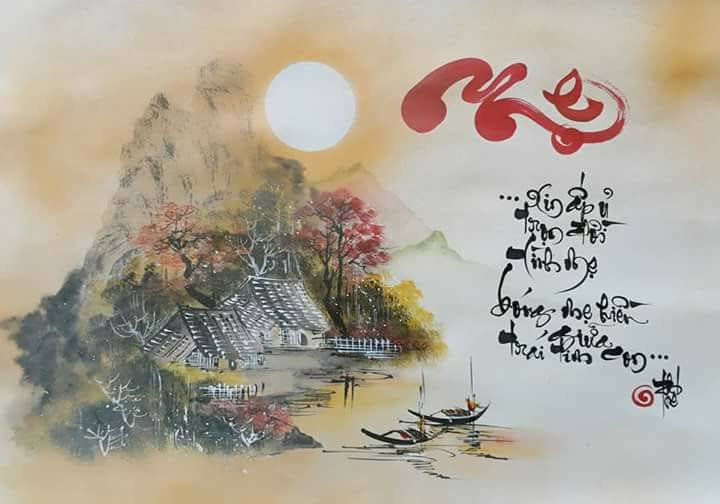 Mẹ
... Xin ấp ủ
trọn đời
tình mẹ
bóng mẹ hiền
giữa
trái tim con...